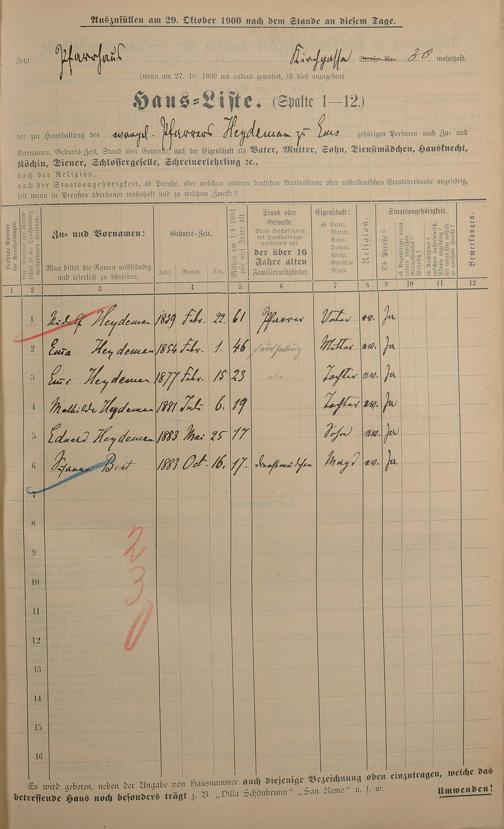 Auszufüllen am 29. Oktober 1900 nach dem Stande an diesem Tage.
Jetzt Pfarrhaus Kirchgasse Straße Nr. 30 wohnhaft.
(wenn am 27. 10. 1899 wo anders gewohnt, ist dies anzugeben)
Haus-Liste. (Spalte 1—12.)
der zur Haushaltung des evangl. Pfarrers Heydeman zu Ems gehörigen Personen nach Zu- und
Vornamen, Geburts-Zeit, Stand oder Gewerbe, nach der Eigenschaft als Vater, Mutter, Sohn, Dienstmädchen, Hausknecht,
Köchin, Diener, Schlossergeselle, Schreinerlehrling ec.,
nach der Religion,
nach der Staatsangehörigkeit, ob Preuße, oder welchem anderen deutschen Bundesstaate oder außerdeutschen Staatsverbande angehörig,
seit wann in Preußen überhaupt wohnhaft und zu welchem Zwecke?
Zu- und Vornamen:
Man bittet die Namen vollständig
und leserlich zu schreiben.
Geburts-Zeit.
Jahr. Monat. Tag.
Stand oder
Gewerbe
der über 16
Jahre alten
Familienmitglieder.
Eigenschaft:
ob Vater,
Mutter,
Sohn,
Tochter,
Knecht,
Geselle u.
Magd.
Religion.
Staatsangehörigkeit.
Ob Preuße?
Bemerkungen.
1 2 3 4 5 6 7 8 9 10 11 12
1 Rudolf Heydeman 1839 Febr. 22. 61 Pfarrer Vater ev. Ja
2 Heydeman 1854 Febr. 1. 46 Mutter ev. Ja
3 Heydeman 1877 Febr. 15 23 Tochter ev. Ja
4 Mathilde Heydeman 1881 Juli 6. 19 Tochter ev. Ja
5 Eduard Heydeman 1883 Mai 25 17 Sohn ev. Ja
6 Susanna Best 1883 Oct. 16. 17. Dienstmädchen Magd ev. Ja
7
8
9
10
11
12
13
14
15
16
230
Es wird gebeten, neben der Angabe von Hausnummer auch diejenige Bezeichnung oben einzutragen, welche das
betreffende Haus noch besonders trägt z. B. „Villa Schönbrunn" „San Remo" u. s. w. Umwenden!